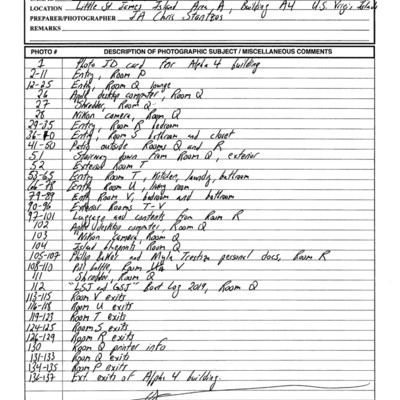 LOCATION Little St James Island Area A, Building A4 U.S. Virgin Islands
PREPARER/PHOTOGRAPHER IA Chris
REMARKS
PHOTO # DESCRIPTION OF PHOTOGRAPHIC SUBJECT / MISCELLANEOUS COMMENTS
1 Photo ID card for Alpha 4 building
2-11 Entry, Room P
12-25 Entry, Room Q lounge
26 Apple desktop computer, Room Q
27 "Shredder, Room Q
28 Nikon camera, Room Q
29-35 Entry, Room R bedroom
36-40 Entry, Room S bathroom and closet
41-50 Patio outside Rooms Q and R
51 Stairway down from Room Q, exterior
52 Exterior Room T
53-65 Entry Room T, Kitchen, laundry, bathroom
66-78 Entry Room U, living room
79-89 Entry Room V, bedroom and bathroom
90-96 Exterior Rooms T-V
97-101 Luggage and contents from Room R
102 Apple desktop computer, Room Q
103 "Nikon camera, Room Q
104 Island Room Q
105-107 Philip and personal docs, Room R
108-110 Pill bottle, Room V
111 Shredder, Room Q
112 "LSJ and GSJ" Boat Log 2019, Room Q
113-115 Room V exits
116-118 Room U exits
119-123 Room T exits
124-125 Room S exits
126-129 Room R exits
130 Room Q printer info
131-133 Room Q exits
134-135 Room P exits
136-137 Ext. exits of Alpha 4 building.